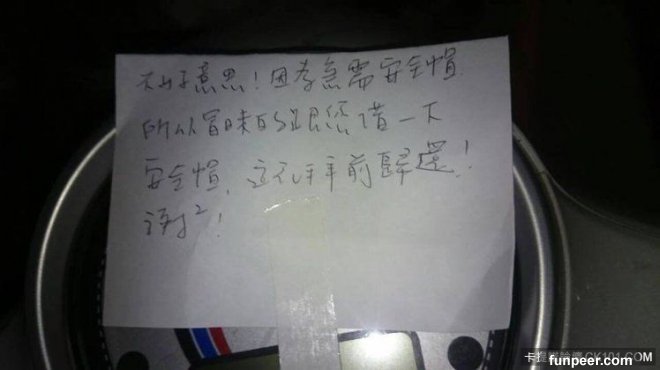 不好意思!因急需安全帽
所以冒昧的跟您借一下
安全帽,這前歸還!
謝²!
卡提諾論壇CK101.COM
funpeer.com